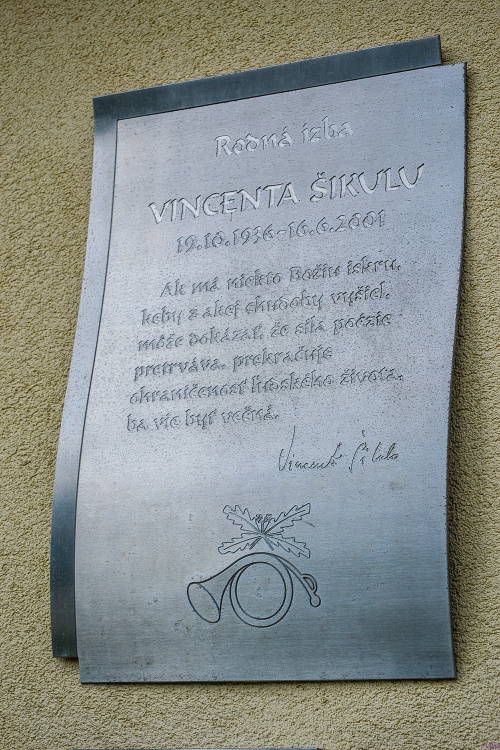 Rodná izba
VINCENTA ŠIKULU
19.10.1936-16.6.2001
Ak má niekto Božiu iskru,
keby z akej chudoby vyšiel,
môže dokázať, že sila poézie
pretrváva, prekračuje
ohraničenosť ľudského života,
ba vie byť večná.
Vincent Šikula